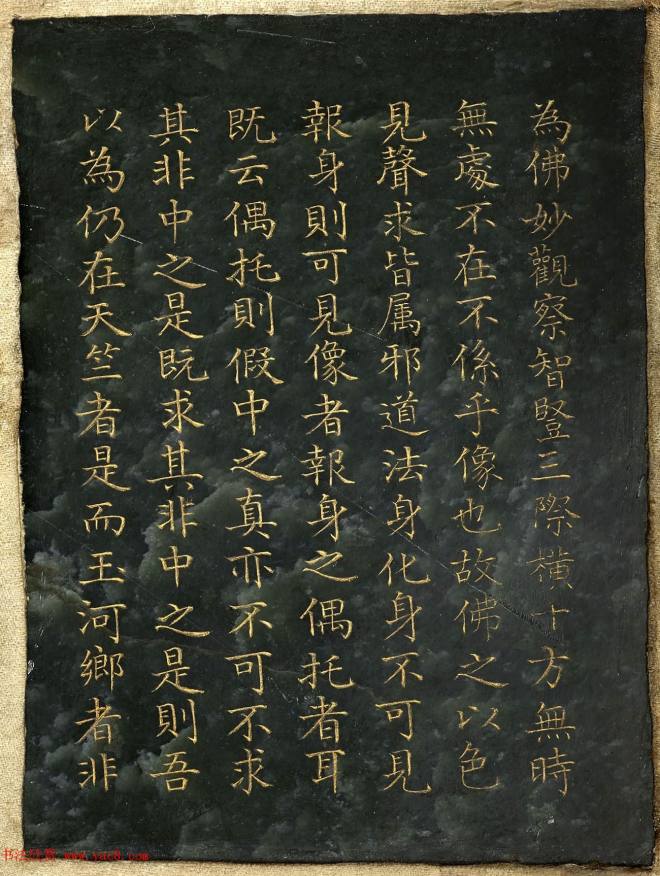 為佛妙觀察智豎三際橫十方無時
無處不在不係乎像也故佛之以色
見聲求皆属邪道法身化身不可見
報身則可見像者報身之偶托者耳
既云偶托則假中之真亦不可不求
其非中之是既求其非中之是則吾
以為仍在天竺者是而玉河鄉者非